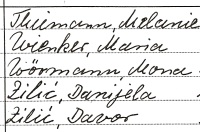 Thiemann, Melanie
Wienker, Maria
Wörmann, Mona
Zilić, Danijela
Zilić, Davor